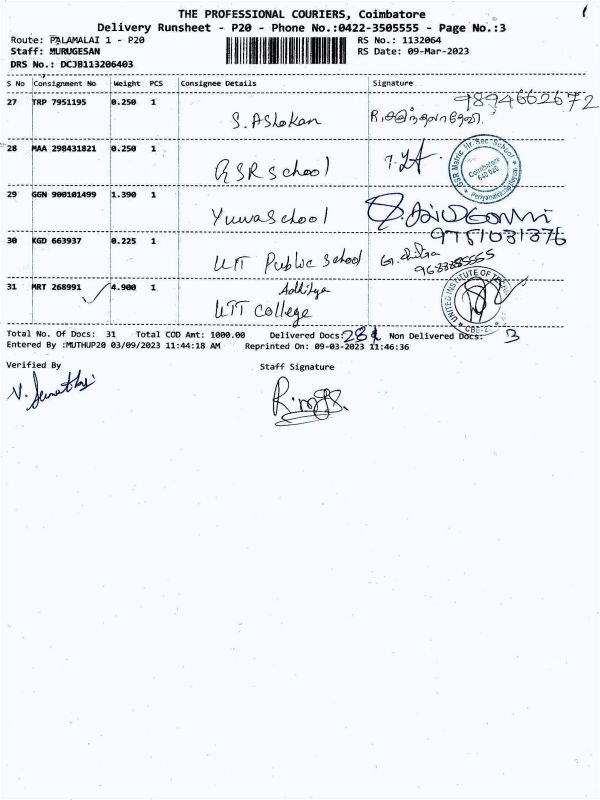 THE PROFESSIONAL COURIERS, Coimbatore
Delivery Runsheet - P20 - Phone No.:0422-3505555 - Page No.:3
Route: PALAMALAI 1 - P20
RS No.: 1132064
Staff: MURUGESAN
RS Date: 09-Mar-2023
DRS No.: DCJB113206403
S No Consignment No Weight PCS Consignee Details Signature
27 TRP 7951195 0.250 1 S. Ashokan 9894662672
28 MAA 298431821 0.250 1 SSR School
SSR Matric Hr. Sec School
Coimbatore
29 GGN 900101499 1.390 1 Yuva School
9751031376
30 KGD 663937 0.225 1 UIT Public School
31 MRT 268991 4.900 1 Adhitya
UIT College
UNITED INSTITUTE OF
Total No. Of Docs: 31 Total COD Amt: 1000.00 Delivered Docs: 28 Non Delivered Docs: 3
Entered By :MUTHUP20 03/09/2023 11:44:18 AM Reprinted On: 09-03-2023 11:46:36
Verified By Staff Signature